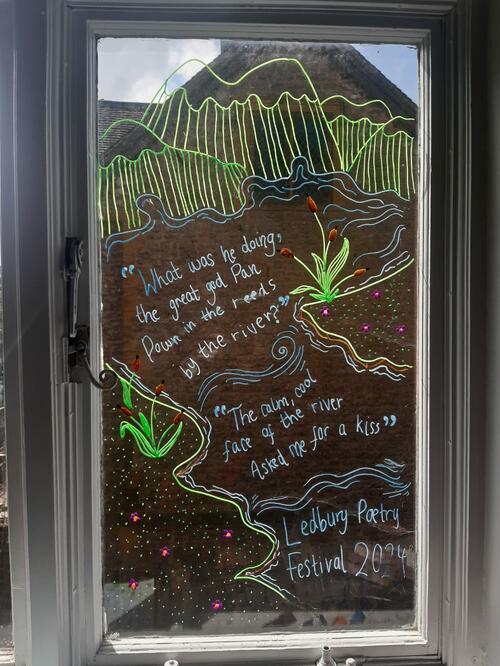 "What was he doing,
the great god Pan
Down in the reeds
by the river?"
"The calm, cool
face of the river
Asked me for a kiss"
Ledbury Poetry
Festival 2024